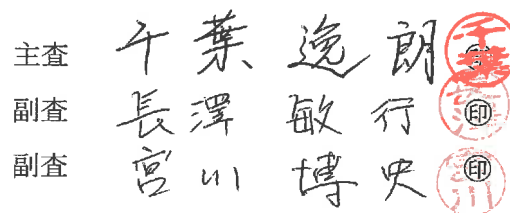 主査 千葉 逸朗 ㊞ 千葉
副査 長澤 敏行 ㊞
副査 宮川 博史 ㊞ 宮川